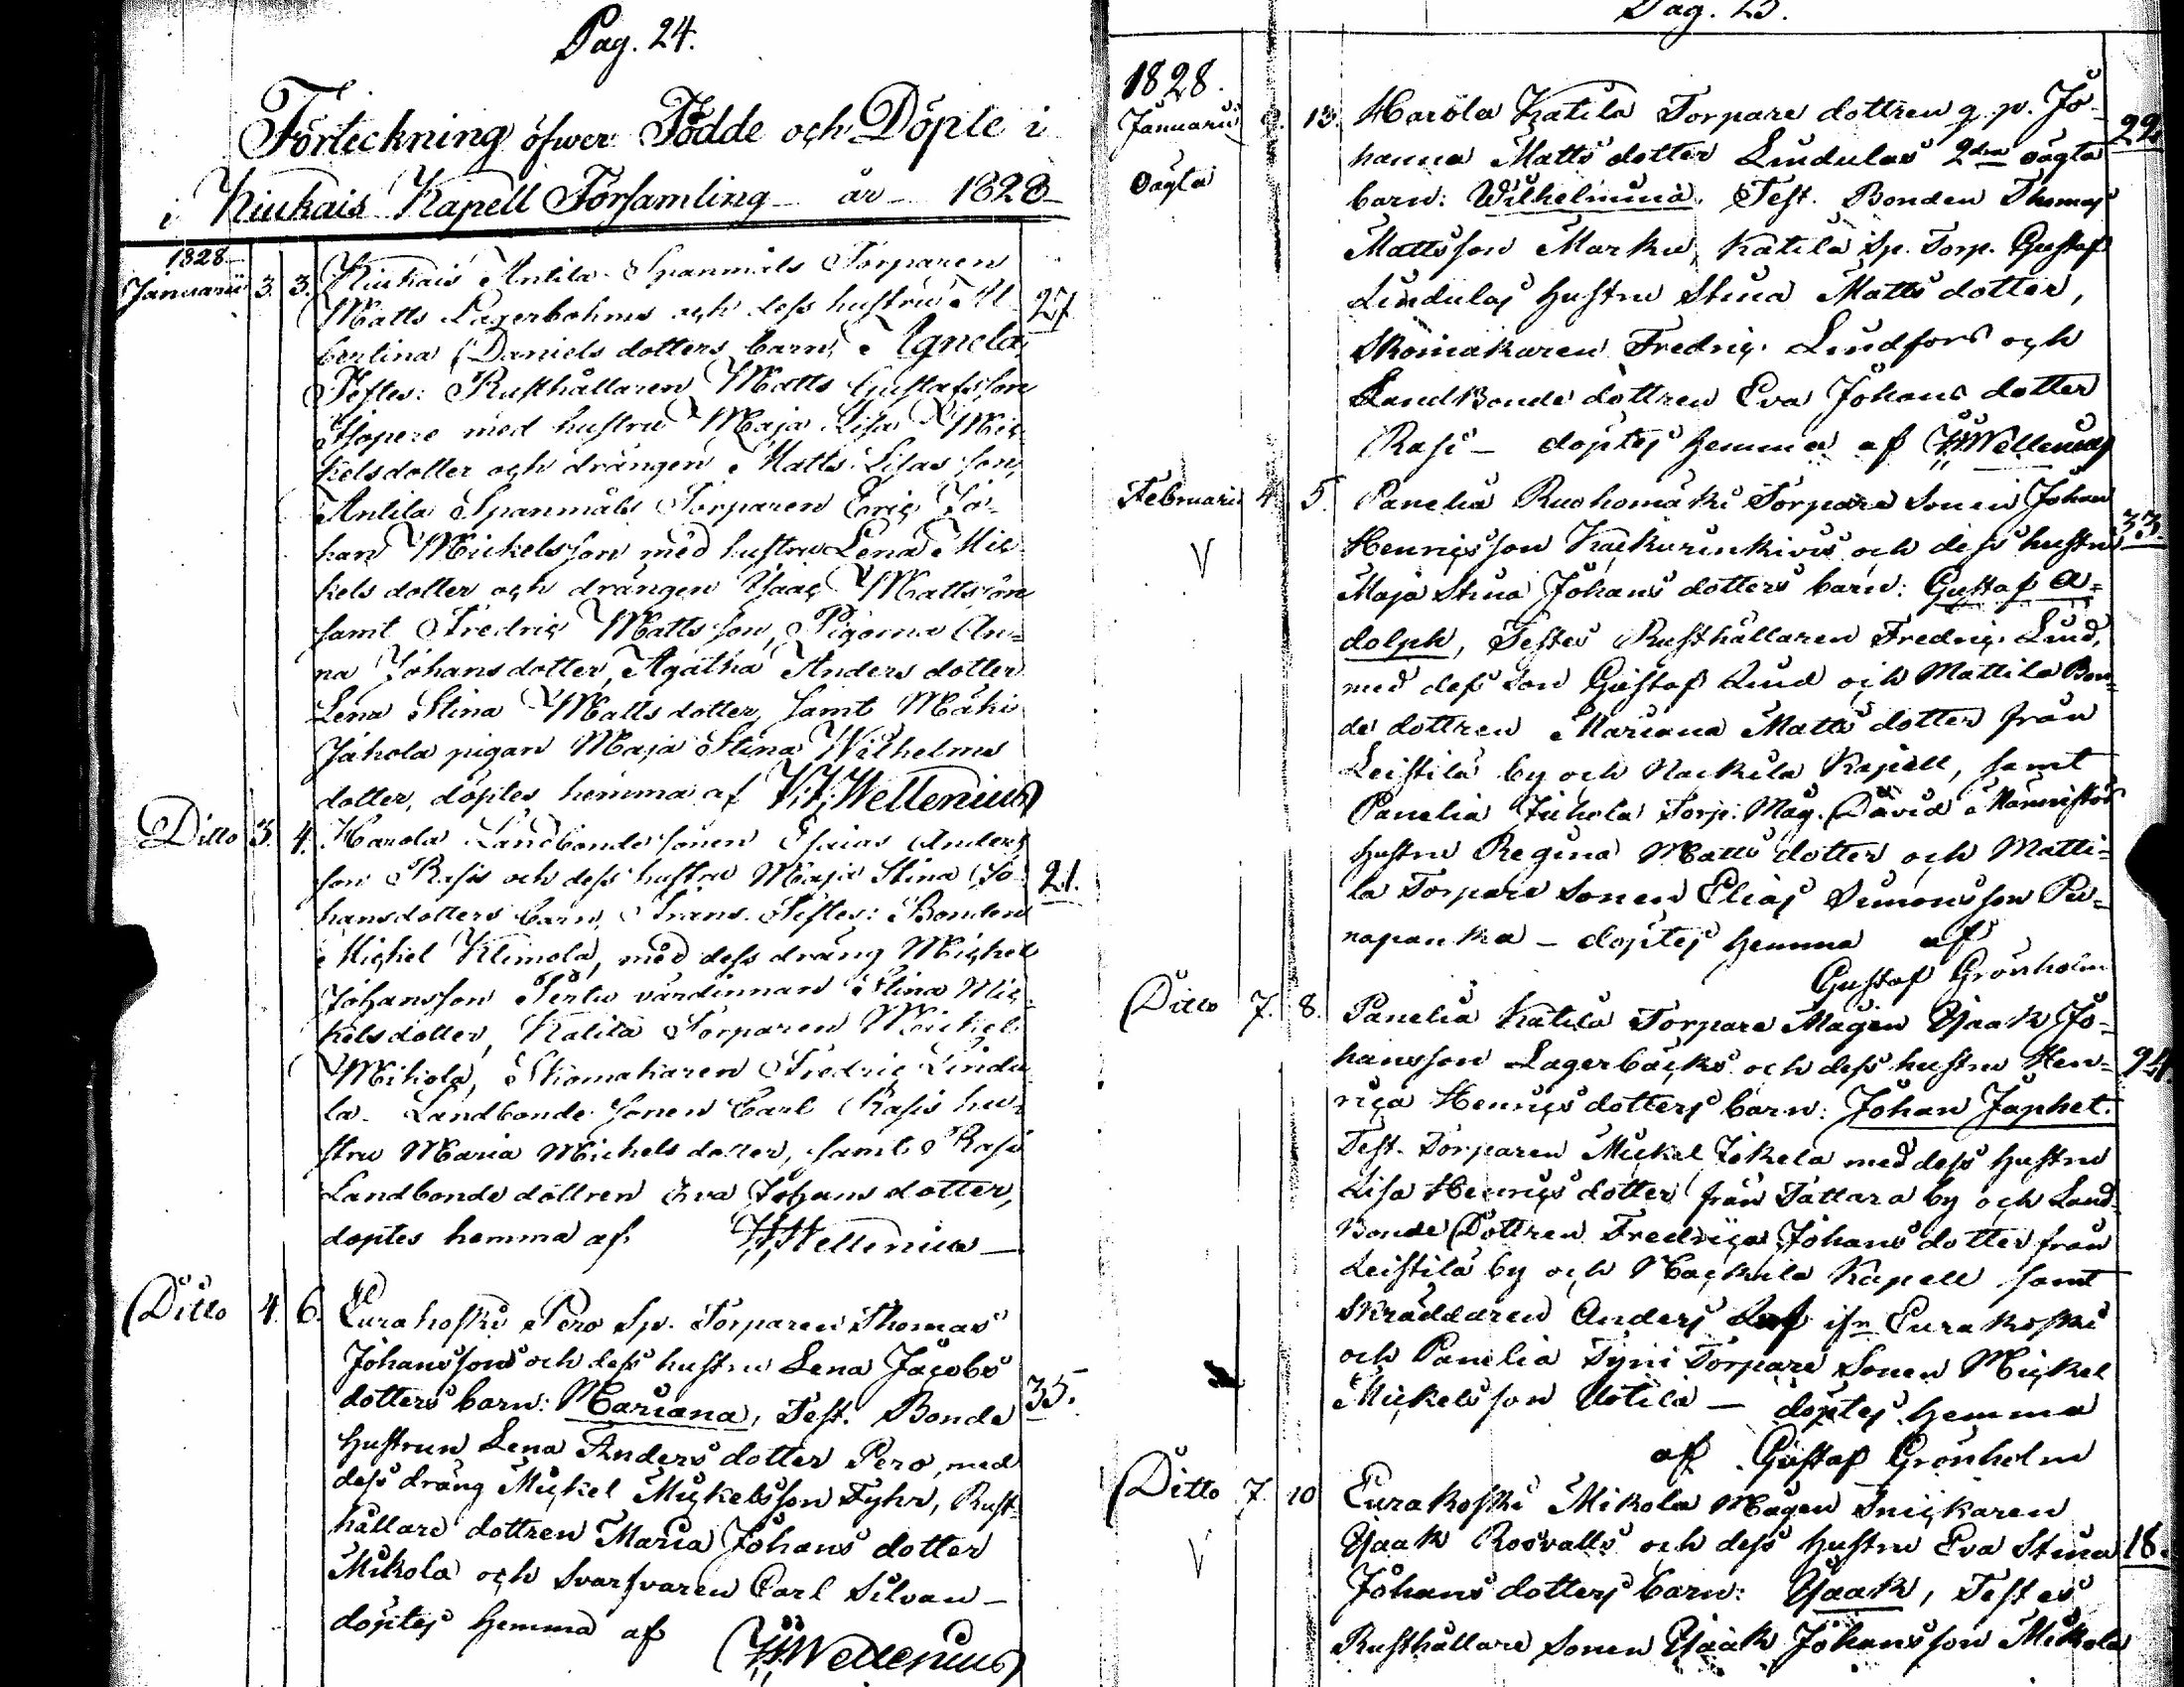 Pag. 24.
Förteckning öfwer Födde och Döpte i
i Kiukais Kapell Församling år 1828
1828
Januarii 3. 3. Kiukais Antila Spanmåls Torparen
Matts Lagerbohms och dess hustru Al 27
bertina Daniels dotters barn, Agneta
Testes: Rusthållaren Matts Gustafsson
Isopere med hustru Maja Lisa Mic
kelsdotter och drängen Matts Lisas son,
Antila Spanmåls Torparen Eric Jo
han Mickelsson med hustru Lena Mic
kels dotter och drängen Isaac Mattsson
samt Fredric Matts son, Pigorna An=
na Johansdotter, Agatha Anders dotter
Lena Stina Matts dotter, samt Mäki
Jakola pigan Maja Stina Wilhelms
dotter, döptes hemma af Wellenius
Ditto 3. 4. Harola Landbonde sonen Esaias Anders
son Rasis och dess hustru Maja Stina Jo 21.
hansdotters barn, Frans. Testes: Bonden
Michel Klemola, med dess dräng Michel
Johansson Perttu värdinnan Stina Mic
kelsdotter, Katila Torparen Mickel
Mikola, Skomakaren Fredric Lindu
la Landbonde sonen Carl Rasis hu
stru Maria Michels dotter, samt Rasi
Landbonde döttren Eva Johans dotter,
döptes hemma af Wellenius
Ditto 4. 6. Eurakoski Pero Sp. Torparen Thomas
Johanssons och dess hustru Lena Jacobs
dotters barn: Mariana, Test. Bonde 35.
Hustrun Lena Anders dotter Pero, med
dess dräng Mickel Mickelsson Fyhr, Rust=
hållare dottren Maria Johans dotter
Mikola och Svarfvaren Carl Silvan
döptes hemma af
Wellenius
Pag. 25.
1828.
Januarii 13. Harola Katila Torpare dottren g. p. Jo 22
hanna Matts dotter Lindulas 2dra oägta
oägta barn: Wilhelmina. Test. Bonden Thomas
Mattsson Marku, Katila Sp. Torp. Gustaf
Lindulas hustru Stina Matts dotter,
Skomakaren Fredric Lindfors och
Landbonde dottren Eva Johans dotter
Rasi döptes hemma af Wellenius
Februarii 4. 5. Panelia Ruohomäki Torpare Sonen Johan
Henricsson och dess hustru 33.
Maja Stina Johans dotters barn: Gustaf A=
dolph, Testes Rusthållaren Fredric Lind,
med dess son Gustaf Lind och Mattila Bon=
de dottren Mariana Matts dotter från
Leistilä by och Nackila Kapell, samt
Panelia Juhola Torp. Måg. David Männistös
hustru Regina Matts dotter och Matti=
la Torpare Sonen Elias Simonsson Pu=
napauka döptes hemma af
Gustaf Grönholm
Ditto 7. 8. Panelia Katila Torpare Mågen Isaak Jo=
hansson Lagerbäcks och dess hustru Hen= 24.
rica Henrics dotters barn: Johan Japhet.
Test. Torparen Mickel Jokela med dess hustru
Lisa Henrics dotter från Tattara by och Land
Bonde Dottren Fredrica Johans dotter från
Leistilä by och Nackila Kapell samt
Skräddaren Anders ifrn Eurakoski
och Panelia Tyni Torpare Sonen Mickel
Mickelsson Uotila döptes hemma
af Gustaf Grönholm
Ditto 7. 10 Eurakoski Mikola Mågen Snickaren
Isaak Rosvalls och dess hustru Eva Stina 18.
Johans dotters barn: Isaak, Testes
Rusthållare Sonen Isaak Johansson Mikola